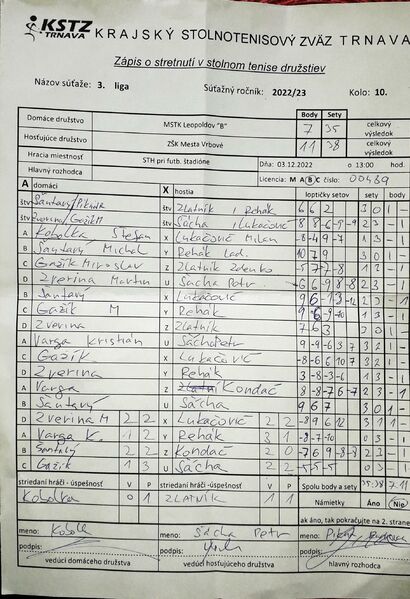 KSTZ TRNAVA KRAJSKÝ STOLNOTENISOVÝ ZVÄZ TRNAVA
Zápis o stretnutí v stolnom tenise družstiev
Názov súťaže: 3. liga Súťažný ročník: 2022/23 Kolo: 10.
Body Sety
Domáce družstvo MSTK Leopoldov "B" 7 35 celkový výsledok
Hosťujúce družstvo ZŠK Mesta Vrbové 11 38 celkový výsledok
Hracia miestnosť STH pri futb. štadióne Dňa: 03.12.2022 o 13:00 hod.
Hlavný rozhodca Licencia: M A B C číslo: 00489
A domáci X hostia loptičky setov sety body
štv Šantavý/ štv Zlatník / Rehák 6 6 2 3 0 1 -
štv Zverina/Gažík M štv Sácha / Lukačovič 2 3 - 1
A Kobolka Štefan X Lukačovič Milan -8 -4 9 -7 1 3 - 1
B Šantavý Michal Y Rehák Lad. 10 7 9 3 0 1 -
C Gažík Miroslav Z Zlatník Zdenko 1 3 - 1
D Zverina Martin U Sácha Petr 2 3 - 1
B Šantavý X Lukačovič 2 3 - 1
C Gažík M Y Rehák 1 3 - 1
D Zverina Z Zlatník 7 6 3 3 0 1 -
A Varga Kristián U Sácha Petr -9 -9 6 3 7 3 2 1 -
C Gažík X Lukačovič -8 -6 6 10 7 3 2 1 -
D Zverina Y Rehák 3 -8 -3 -6 1 3 - 1
A Varga Z Kondáč 2 3 - 1
B Šantavý U Sácha 9 6 7 3 0 1 -
D Zverina M 2 2 X Lukačovič 2 2 -8 9 6 12 3 1 1 -
A Varga K. 1 2 Y Rehák 3 1 -8 -7 -10 0 3 - 1
B Šantavý 2 2 Z Kondáč 2 0 -7 6 9 -8 -8 2 3 - 1
C Gažík 1 3 U Sácha 2 2 -5 -5 -5 0 3 - 1
striedaní hráči - úspešnosť V P striedaní hráči - úspešnosť V P Spolu body a sety 35:38 7:11
Kobolka 0 1 Zlatník 1 1 Námietky Áno Nie
ak áno, tak pokračujte na 2. strane
meno: meno: Sácha Petr meno:
podpis: podpis: podpis:
vedúci domáceho družstva vedúci hosťujúceho družstva hlavný rozhodca